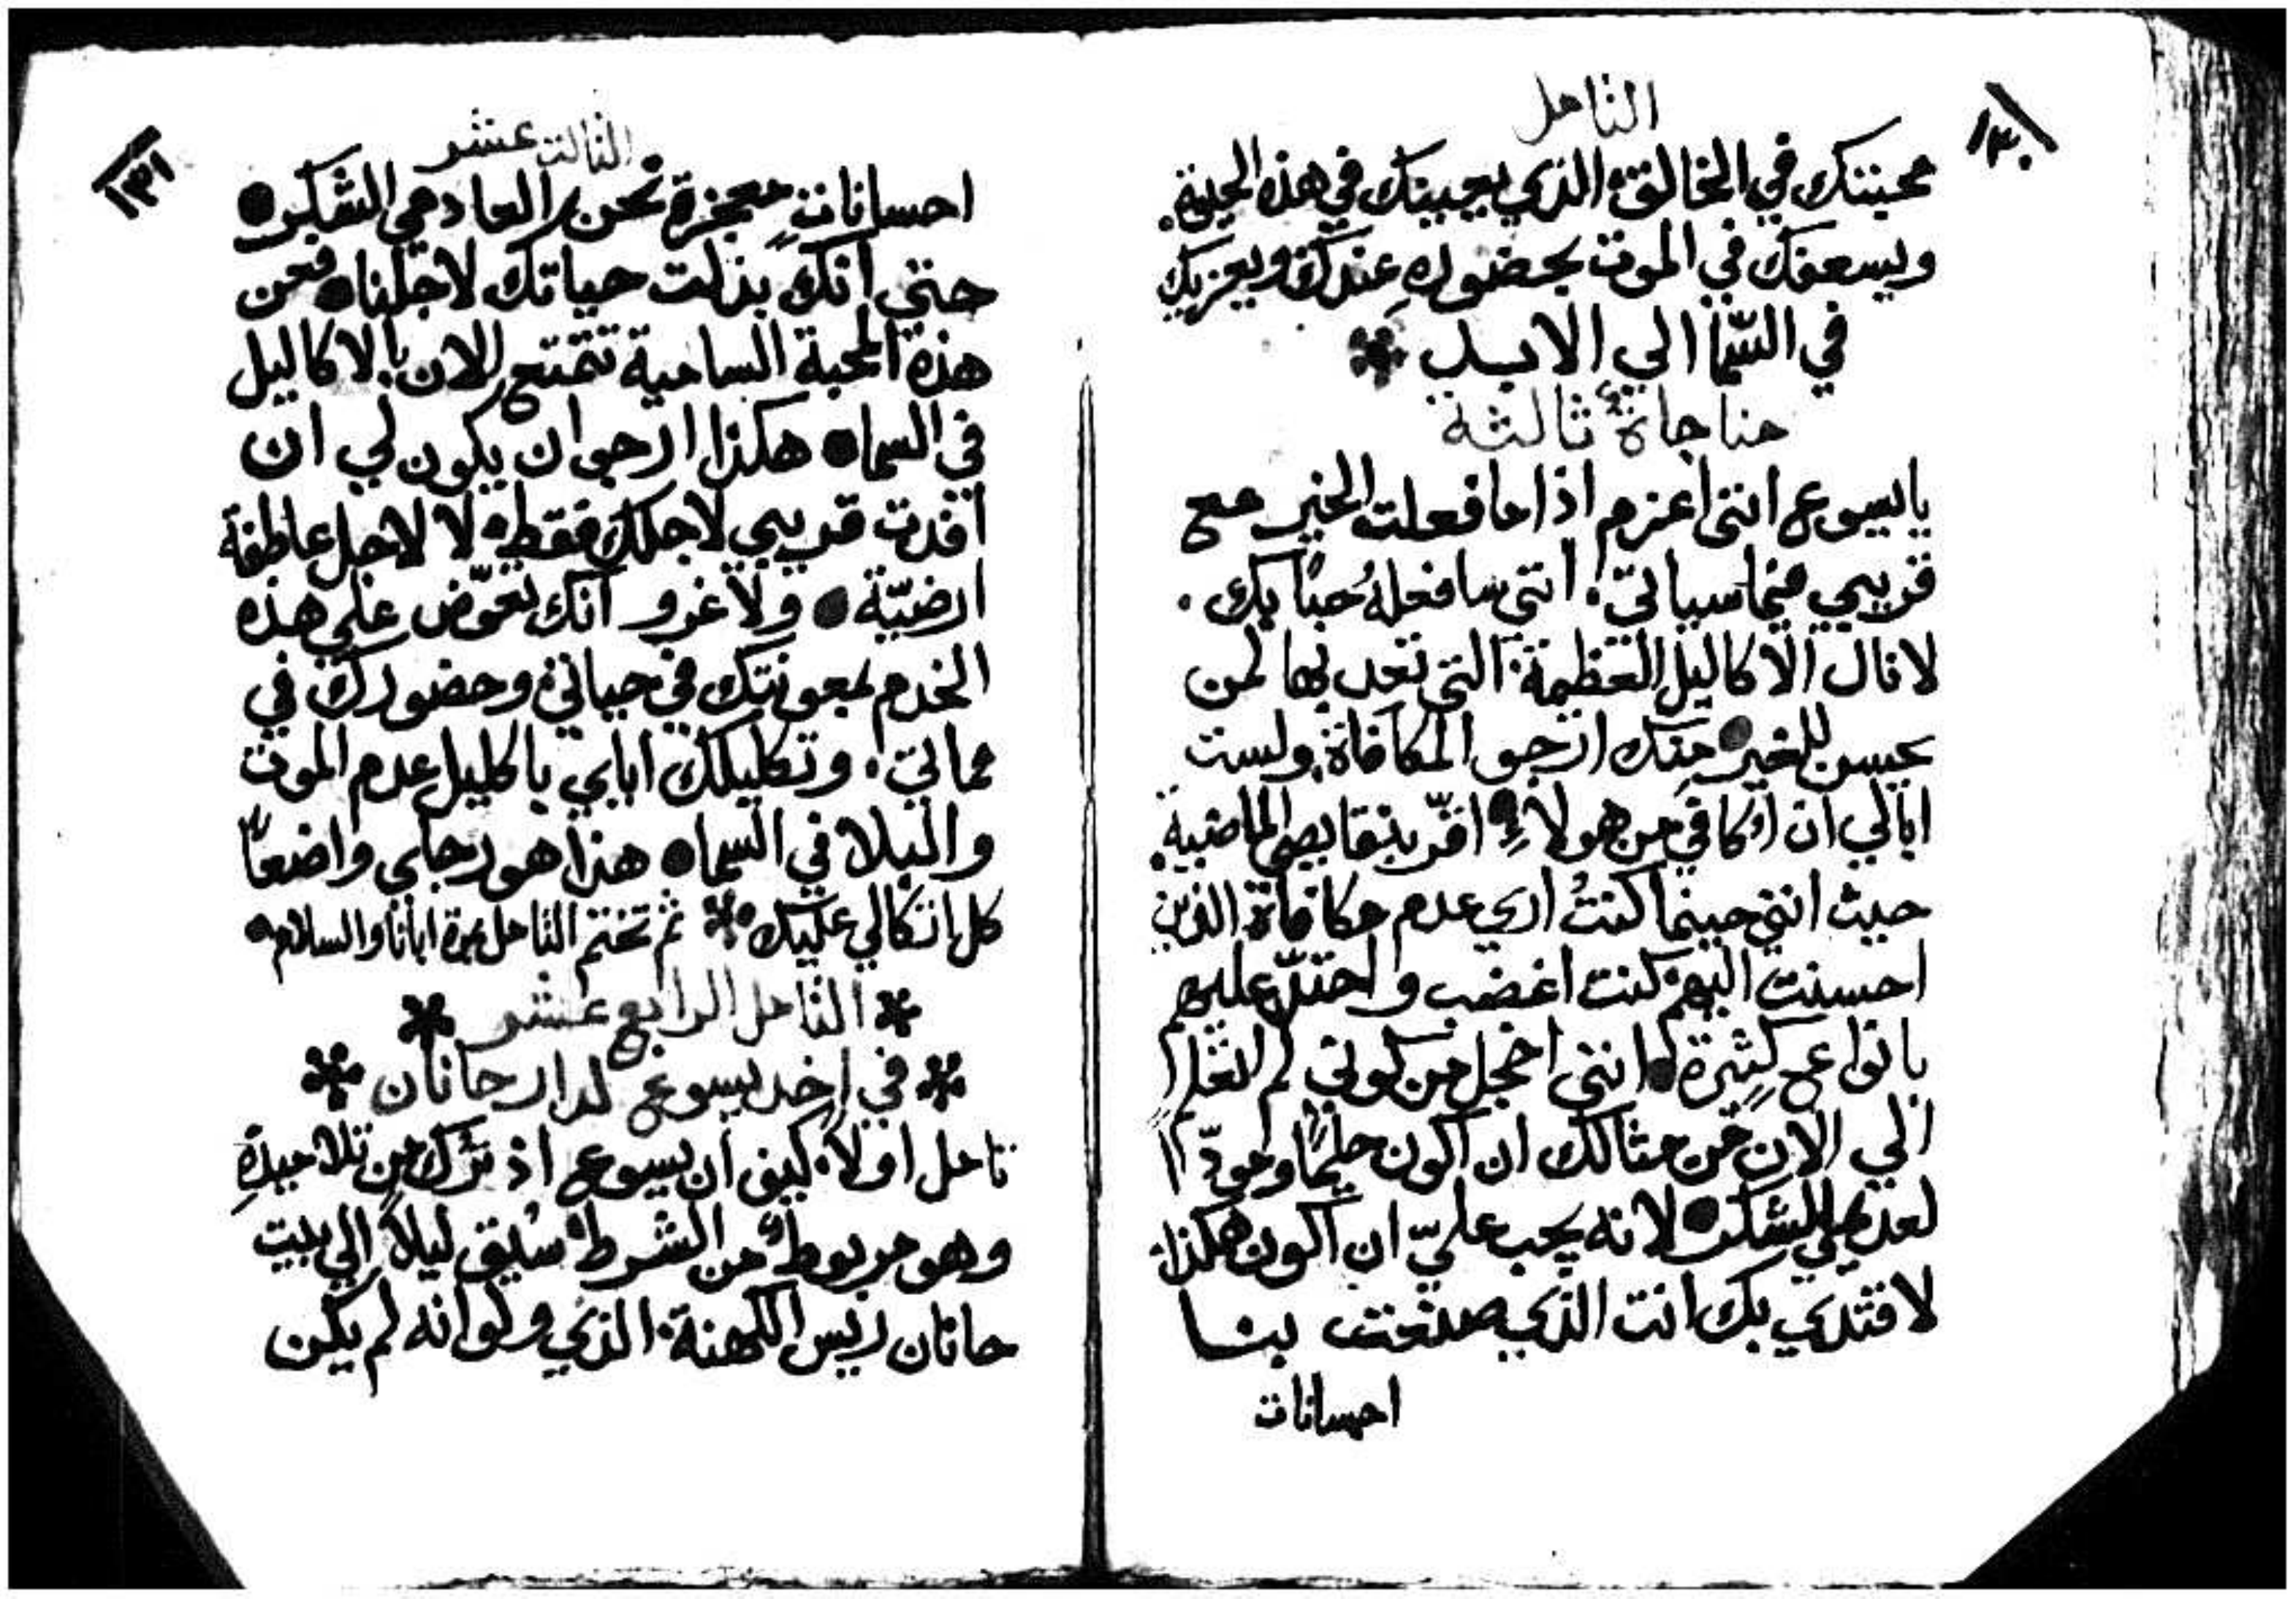 ١٣٠
التامل
محبتك في الخالق الذي يحبك في هذه الحيوة
ويسعفك في الموت بحضوره عندك ويعزيك
في السّما الي الابد
مناجاة ثالثة
يايسوع انني اعزم اذا ما فعلت الخير مع
قريبي فيما سياتي انني سافعلهُ حبًا بك
لانال الاكاليل العظيمة التي تعد بها لمن
يحسن للغير منك ارجو المكافاة ولست
ابالي ان اوكافي من هولاءِ اقرّ بنقايصي الماضية
حيث انني حينما كنتُ اري عدم مكافاة الذين
احسنت اليهم كنت اغضب و عليهم
بانواع كثيرة انني اخجل من كوني لم اتعلم
الي الان من مثالك ان اكون حليمًا
لعديمي الشكر لانه يجب عليّ ان اكون هكذا
لاقتدي بك انت الذي صنعت بنا
احسانات
١٣١
الثالث عشر
احسانات معجزة نحن العادمي الشكر
حتي انك بذلت حياتك لاجلنا فعن
هذه المحبة السامية تتمتع الان بالاكاليل
في السما هكذا ارجو ان يكون لي ان
افدت قريبي لاجلك فقط لا لاجل عاطفة
ارضيّة ولا غرو انك تعوّض علي هذه
الخدم بمعونتك في حياتي وحضورك في
مماتي وتكليلك اياي باكليل عدم الموت
والبلا في السما هذا هو رجاي واضعًا
كل اتكالي عليك ثم تختم التامل بمرة ابانا والسلام
التامل الرابع عشر
في اخد يسوع لدار حانان
تامل اولاً كيف ان يسوع اذ ترك من تلاميذهِ
وهو مربوط من الشرط سُيق ليلاً الي بيت
حانان ريس الكهنة الذي ولو انه لم يكن